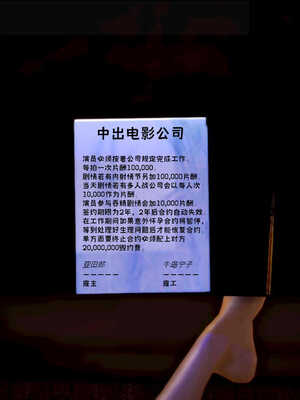 中出电影公司
演员必须按着公司规定完成工作.
每拍一次片酬100,000.
剧情若有内射情节另加100,000片酬.
当天剧情若有多人战公司会以每人次
10,000作为片酬.
演员参与吞精剧情会加10,000片酬.
签约期限为2年, 2年后合约自动失效.
在工作期间如果意外怀孕合约将暂停,
等到处理好生理问题后才能恢复合约.
单方面要终止合约必须配上对方
20,000,000毁约费.
亚田郎 牛岛宁子
雇主 雇工